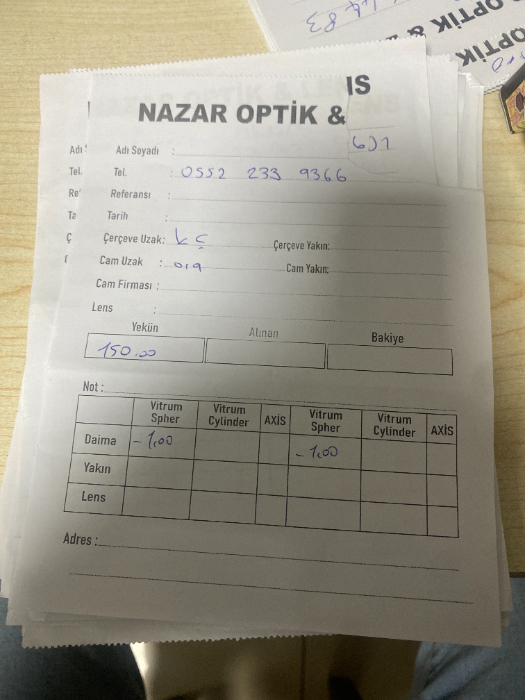 NAZAR OPTİK &
Adı Soyadı :
Tel. : 0552 233 9366
Referansı :
Tarih :
Çerçeve Uzak: kç Çerçeve Yakın:
Cam Uzak : Cam Yakın:
Cam Firması :
Lens :
Yekün Alınan Bakiye
150.00
Not :
Vitrum Spher Vitrum Cylinder AXİS Vitrum Spher Vitrum Cylinder AXİS
Daima -1,00 -1,00
Yakın
Lens
Adres :